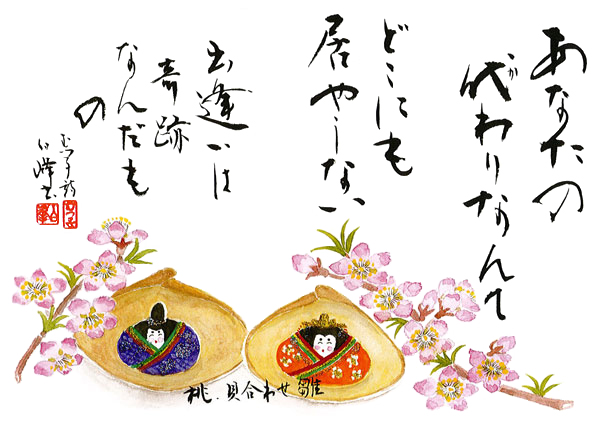 あなたの
代わりなんて
か
どこにも
居やしない
出逢いは
奇跡
なんだもの
桃.貝合わせ雛